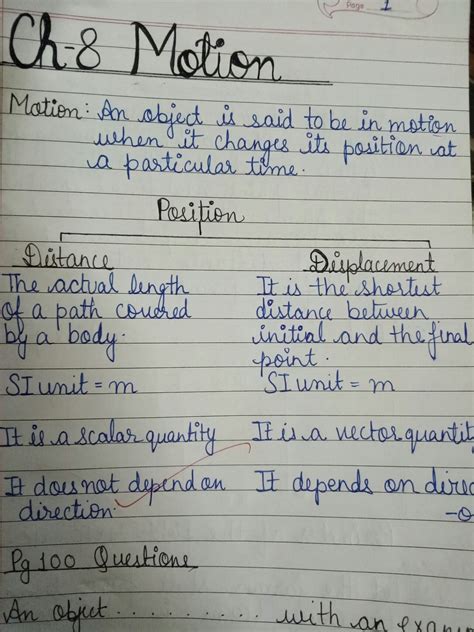 Page 1
Ch-8 Motion
Motion: An object is said to be in motion
when it changes its position at
a particular time.
Position
Distance Displacement
The actual length It is the shortest
of a path covered distance between
by a body. initial and the final
point.
SI unit = m SI unit = m
It is a scalar quantity It is a vector quantit
It does not depend on It depends on direc
direction. -o
Pg 100 Questions
An object ......... with an exam